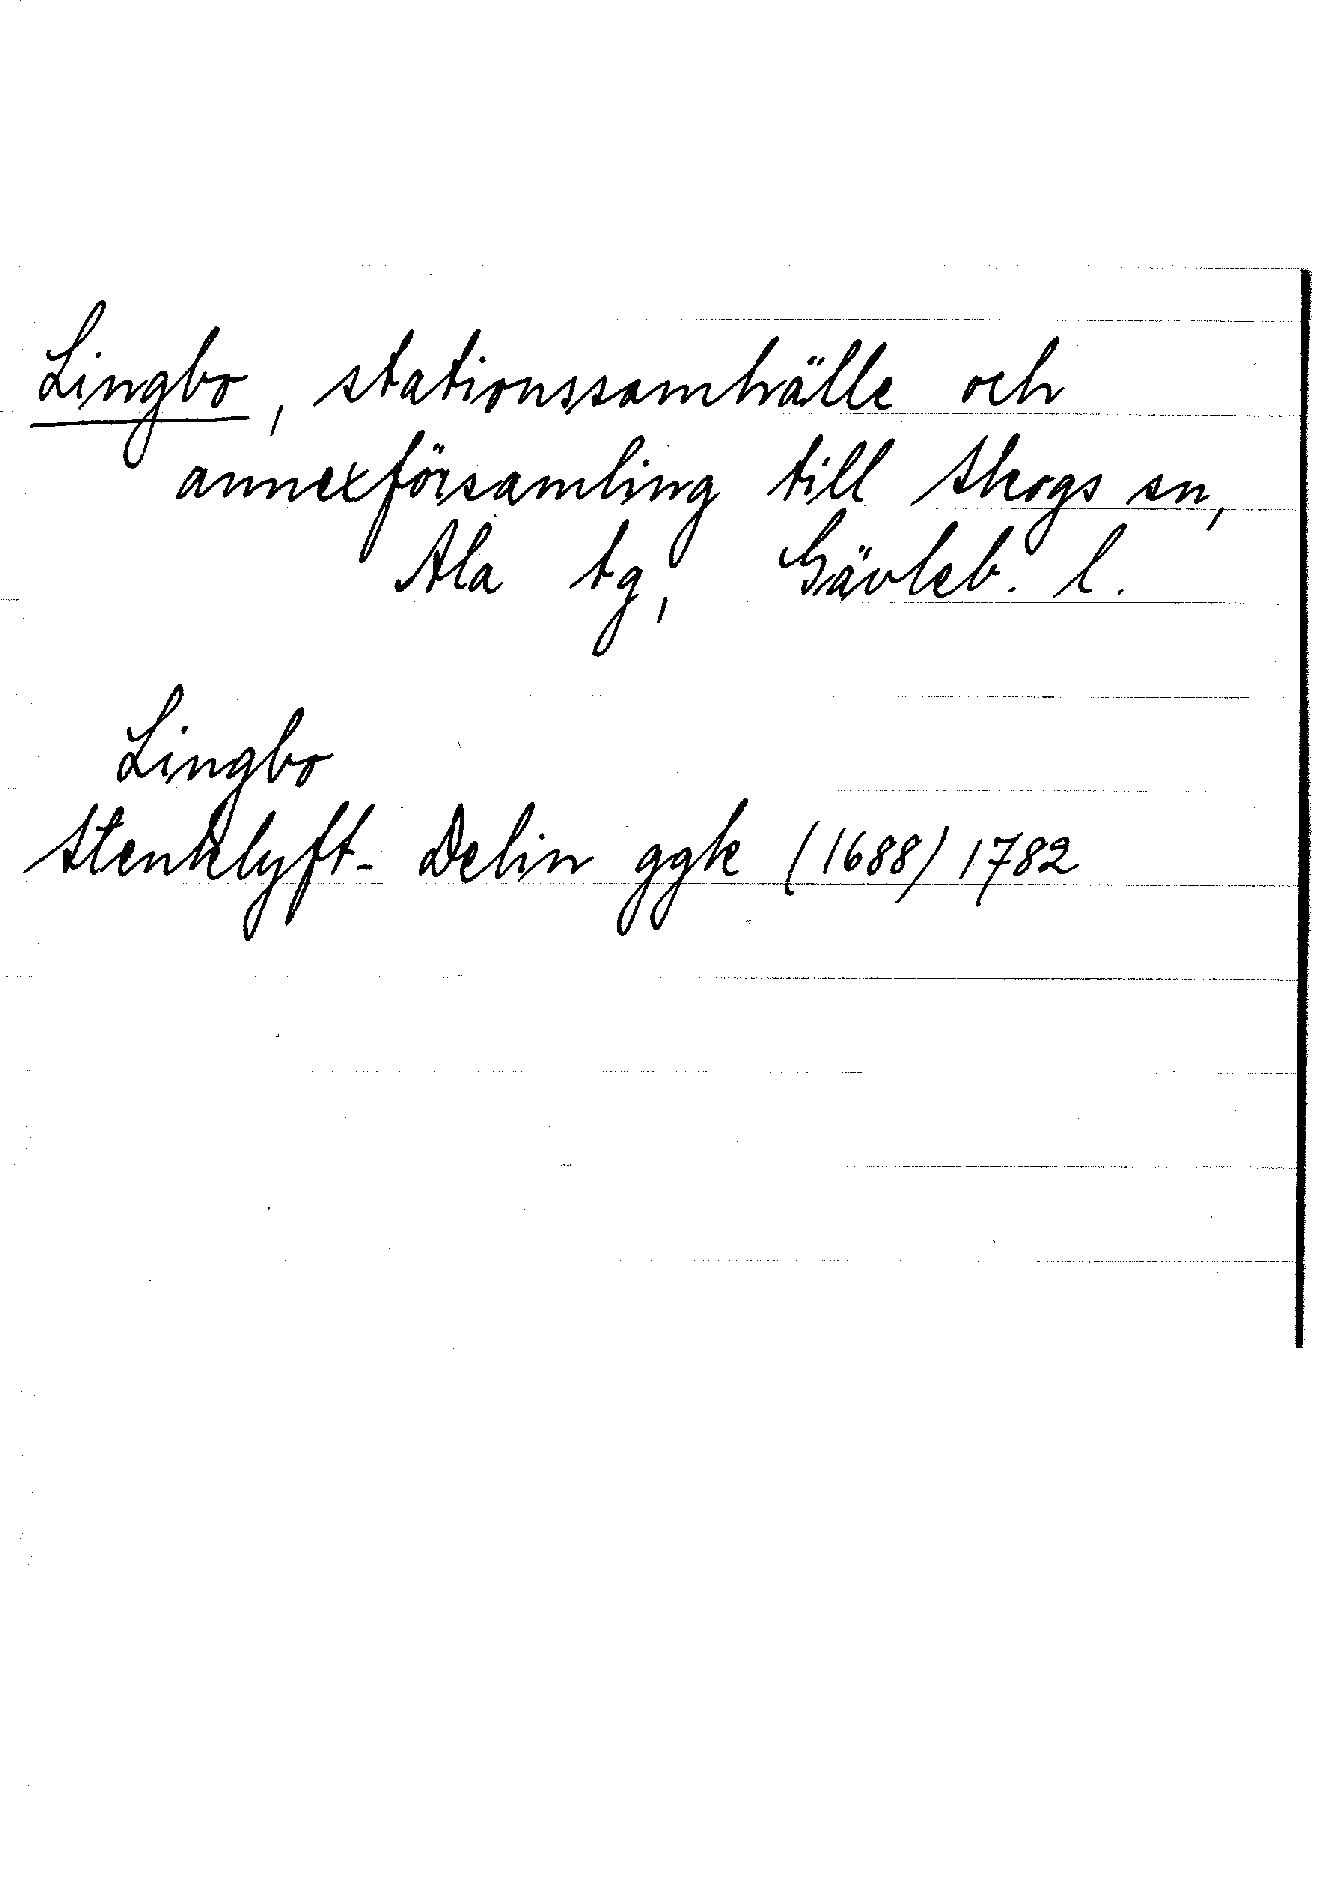 Lingbo, stationssamhälle och
annexförsamling till Skogs sn,
Ala tg, Gävleb. l.
Lingbo
Stenklyft- Delin ggk (1688) 1782